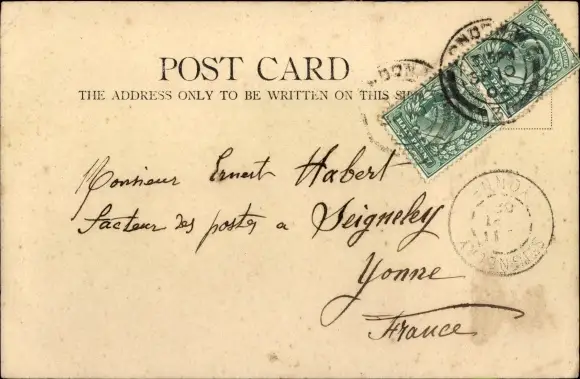 POST CARD
THE ADDRESS ONLY TO BE WRITTEN ON THIS
Monsieur Ernest Habert
facteur des postes a Seigneley
Yonne
France